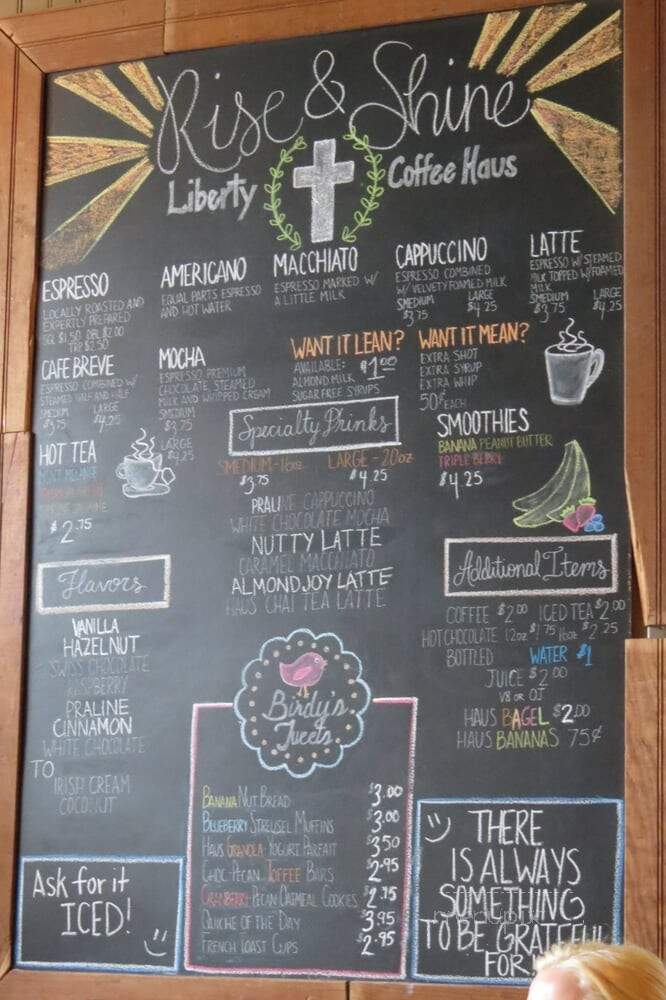 Rise & Shine
Liberty Coffee Haus
ESPRESSO
LOCALLY ROASTED AND
EXPERTLY PREPARED
SGL $1.50 DBL $2.00
TRP $2.50
AMERICANO
EQUAL PARTS ESPRESSO
AND HOT WATER
MACCHIATO
ESPRESSO MARKED W/
A LITTLE MILK
CAPPUCCINO
ESPRESSO COMBINED
W/ VELVETY FOAMED MILK
SMEDIUM LARGE
$3.75 $4.25
LATTE
ESPRESSO W/ STEAMED
MILK TOPPED W/ FOAMED
MILK
SMEDIUM LARGE
$3.75 $4.25
CAFE BREVE
ESPRESSO COMBINED W/
STEAMED HALF AND HALF
SMEDIUM LARGE
$3.75 $4.25
MOCHA
ESPRESSO PREMIUM
CHOCOLATE STEAMED
MILK AND WHIPPED CREAM
SMEDIUM
$3.75
LARGE
$4.25
WANT IT LEAN?
AVAILABLE: $1.00
ALMOND MILK
SUGAR FREE SYRUPS
WANT IT MEAN?
EXTRA SHOT
EXTRA SYRUP
EXTRA WHIP
50¢ EACH
HOT TEA
$2.75
Specialty Drinks
SMEDIUM-16oz LARGE-20oz
$3.75 $4.25
PRALINE CAPPUCCINO
WHITE CHOCOLATE MOCHA
NUTTY LATTE
CARAMEL MACCHIATO
ALMOND JOY LATTE
HAUS CHAI TEA LATTE
SMOOTHIES
BANANA PEANUT BUTTER
TRIPLE BERRY
$4.25
Flavors
VANILLA
HAZELNUT
SWISS CHOCOLATE
RASPBERRY
PRALINE
CINNAMON
WHITE CHOCOLATE
TO
IRISH CREAM
COCONUT
Additional Items
COFFEE $2.00 ICED TEA $2.00
HOT CHOCOLATE 12oz $1.75 16oz $2.25
BOTTLED WATER $1
JUICE $2.00
V8 OR OJ
HAUS BAGEL $2.00
HAUS BANANAS 75¢
Birdy's
Tweets
BANANA NUT BREAD $3.00
BLUEBERRY STREUSEL MUFFINS $3.00
HAUS GRANOLA YOGURT PARFAIT $3.50
CHOC-PECAN TOFFEE BARS $2.95
CRANBERRY PECAN OATMEAL COOKIES $2.75
QUICHE OF THE DAY $3.95
FRENCH TOAST CUPS $2.95
Ask for it
ICED!
THERE
IS ALWAYS
SOMETHING
TO BE GRATEFUL
FOR!